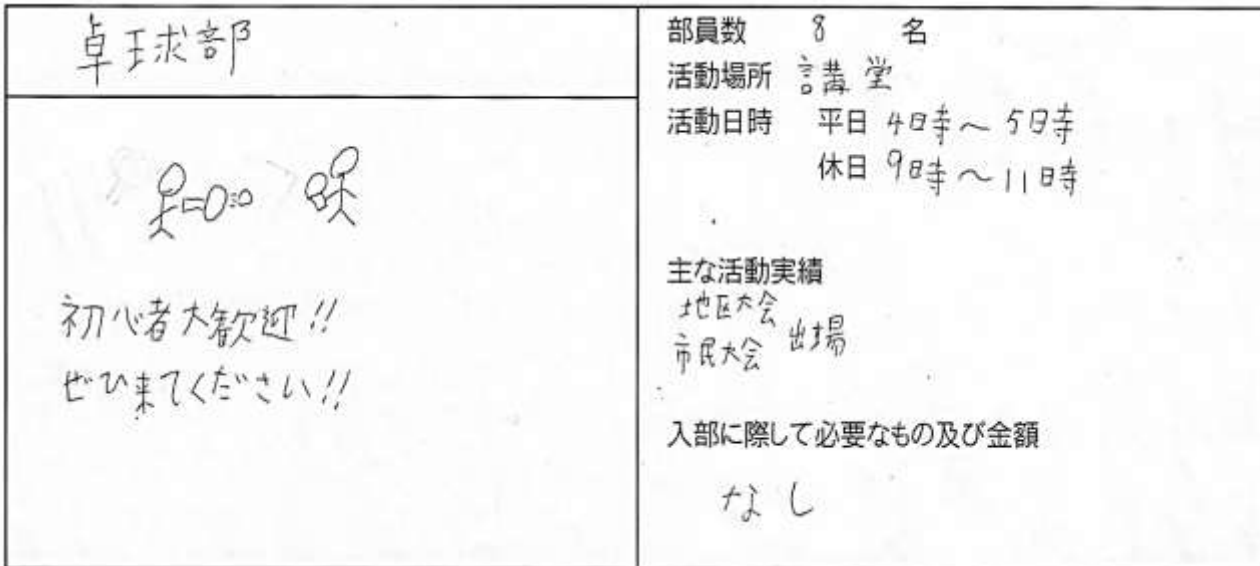 卓球部
初心者大歓迎!!
ぜひ来てください!!
部員数 8 名
活動場所 講堂
活動日時 平日 4時~5時
休日 9時~11時
主な活動実績
地区大会
市民大会 出場
入部に際して必要なもの及び金額
なし